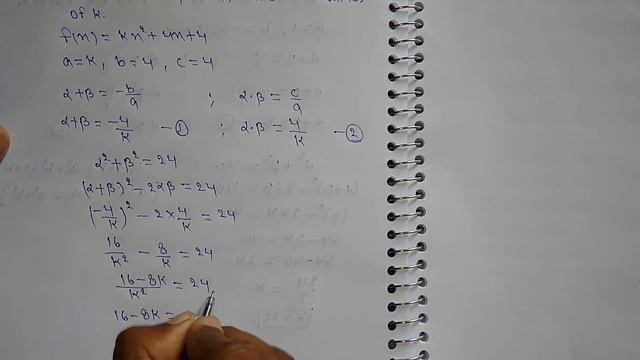 of k.
f(x) = kx² + 4x + 4
a = k, b = 4, c = 4
α + β = -b/a ; α·β = c/a
α + β = -4/k — ① ; α·β = 4/k — ②
α² + β² = 24
(α + β)² - 2αβ = 24
(-4/k)² - 2 × 4/k = 24
16/k² - 8/k = 24
16 - 8k/k² = 24
16 - 8k =